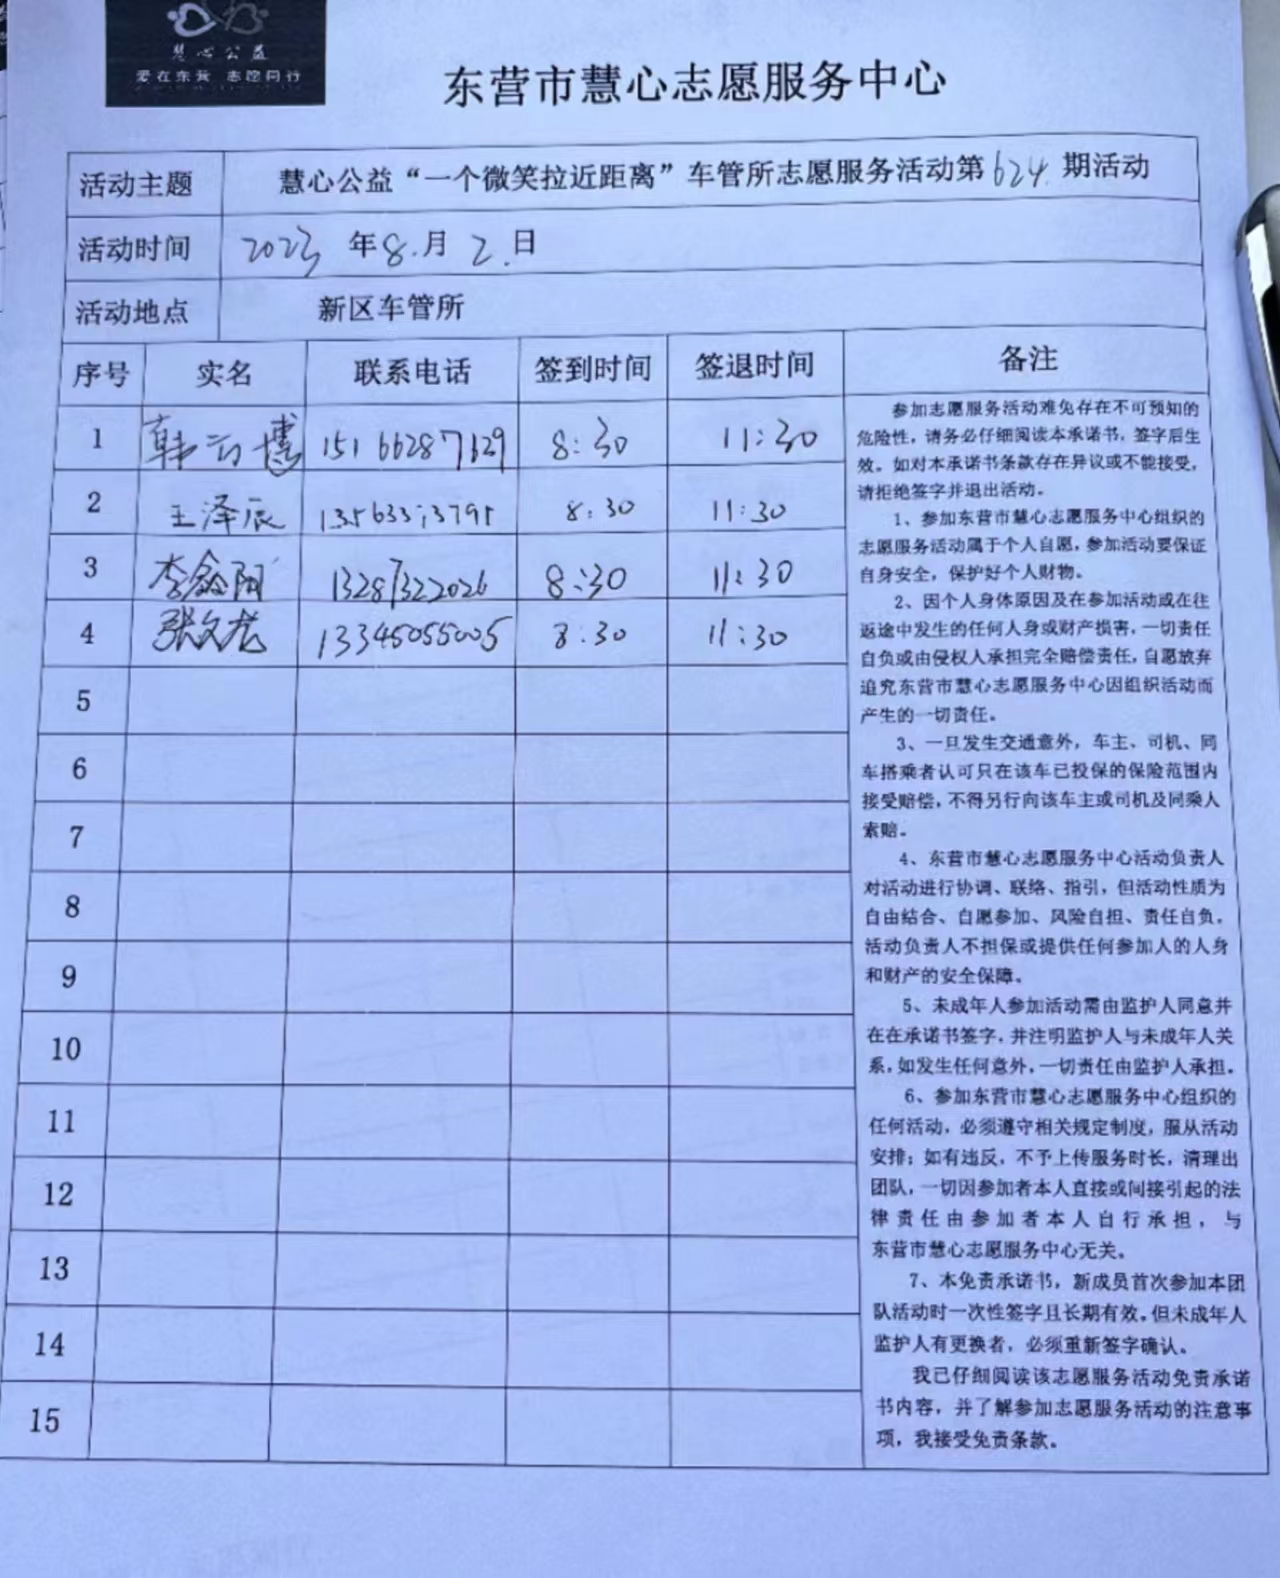 慧心公益
爱在东营 志愿同行
东营市慧心志愿服务中心
活动主题 慧心公益“一个微笑拉近距离”车管所志愿服务活动第624.期活动
活动时间 2023年8.月2.日
活动地点 新区车管所
序号 实名 联系电话 签到时间 签退时间 备注
1 韩云博 15166287629 8:30 11:30
2 王泽辰 8:30 11:30
3 李鑫阳 13287322026 8:30 11:30
4 张文龙 13345055005 8:30 11:30
5
6
7
8
9
10
11
12
13
14
15
参加志愿服务活动难免存在不可预知的
危险性，请务必仔细阅读本承诺书，签字后生
效。如对本承诺书条款存在异议或不能接受，
请拒绝签字并退出活动。
1、参加东营市慧心志愿服务中心组织的
志愿服务活动属于个人自愿，参加活动要保证
自身安全，保护好个人财物。
2、因个人身体原因及在参加活动或在往
返途中发生的任何人身或财产损害，一切责任
自负或由侵权人承担完全赔偿责任，自愿放弃
追究东营市慧心志愿服务中心因组织活动而
产生的一切责任。
3、一旦发生交通意外，车主、司机、同
车搭乘者认可只在该车已投保的保险范围内
接受赔偿，不得另行向该车主或司机及同乘人
索赔。
4、东营市慧心志愿服务中心活动负责人
对活动进行协调、联络、指引，但活动性质为
自由结合、自愿参加、风险自担、责任自负。
活动负责人不担保或提供任何参加人的人身
和财产的安全保障。
5、未成年人参加活动需由监护人同意并
在在承诺书签字，并注明监护人与未成年人关
系，如发生任何意外，一切责任由监护人承担。
6、参加东营市慧心志愿服务中心组织的
任何活动，必须遵守相关规定制度，服从活动
安排；如有违反，不予上传服务时长，清理出
团队，一切因参加者本人直接或间接引起的法
律责任由参加者本人自行承担，与
东营市慧心志愿服务中心无关。
7、本免责承诺书，新成员首次参加本团
队活动时一次性签字且长期有效。但未成年人
监护人有更换者，必须重新签字确认。
我已仔细阅读该志愿服务活动免责承诺
书内容，并了解参加志愿服务活动的注意事
项，我接受免责条款。